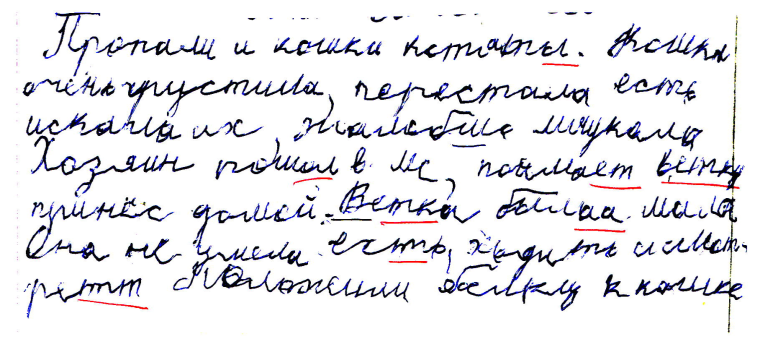 Пропали и кошки котяты. Кошка
очень грустила, перестала есть
искала их, жалобше мяукала
Хозяин пошол в лес, поймает ветку
принёс домой. Ветка былаа мала
Она не умела есть, ходить и смот-
ретт Положили белку к кошке